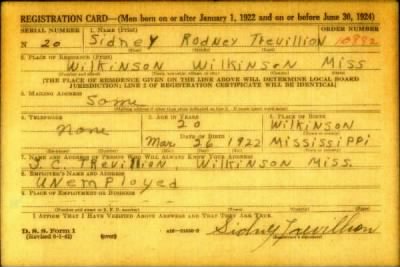 REGISTRATION CARD—(Men born on or after January 1, 1922 and on or before June 30, 1924)
SERIAL NUMBER 1. NAME (Print) ORDER NUMBER
N 20 Sidney Rodney Trevillion
2. PLACE OF RESIDENCE (Print)
Wilkinson Wilkinson Miss
[THE PLACE OF RESIDENCE GIVEN ON THE LINE ABOVE WILL DETERMINE LOCAL BOARD
JURISDICTION; LINE 2 OF REGISTRATION CERTIFICATE WILL BE IDENTICAL]
3. MAILING ADDRESS
Same
4. TELEPHONE 5. AGE IN YEARS 6. PLACE OF BIRTH
none 20 Wilkinson
DATE OF BIRTH
Mar 26 1922 Mississippi
7. NAME AND ADDRESS OF PERSON WHO WILL ALWAYS KNOW YOUR ADDRESS
J.C. Trevillion, Wilkinson Miss.
8. EMPLOYER'S NAME AND ADDRESS
Unemployed
9. PLACE OF EMPLOYMENT OR BUSINESS
I AFFIRM THAT I HAVE VERIFIED ABOVE ANSWERS AND THAT THEY ARE TRUE.
D. S. S. Form 1
Sidney Trevillion